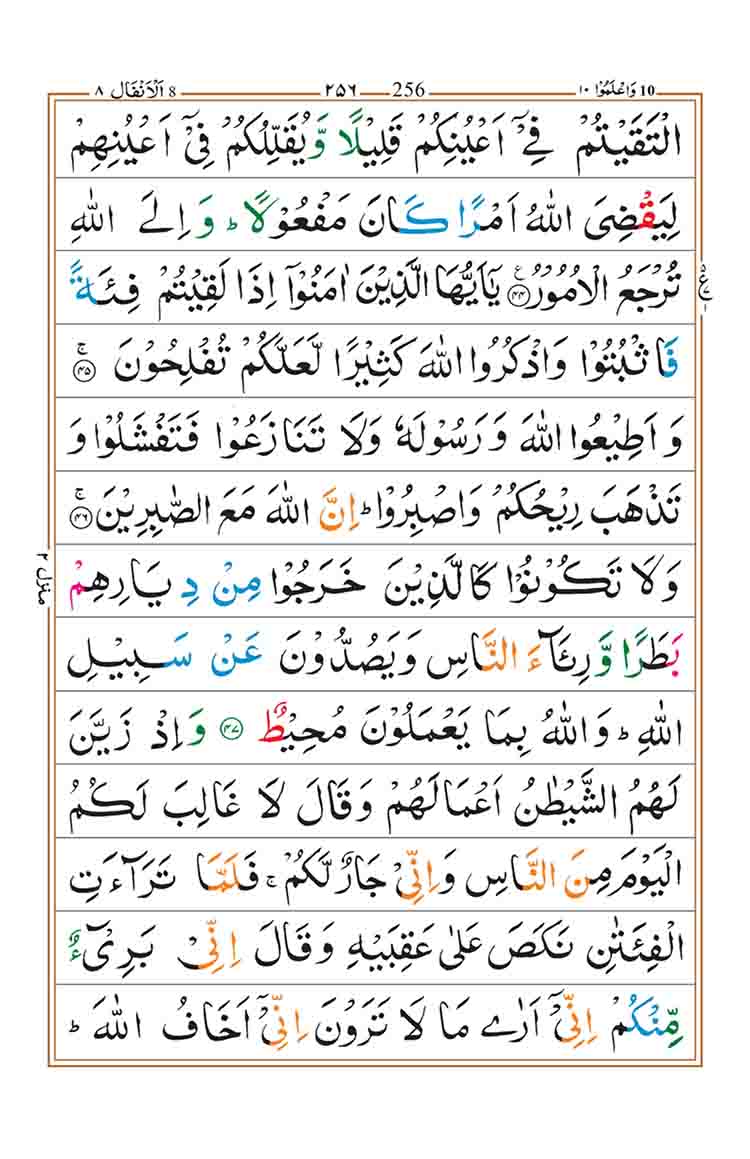 10 وَاعْلَمُوْا ١٠ 256 ٢٥٦ 8 اَلْاَنْفَال ٨
الْتَقَيْتُمْ فِيْۤ اَعْيُنِكُمْ قَلِيْلًا وَّيُقَلِّلُكُمْ فِيْۤ اَعْيُنِهِمْ
لِيَقْضِيَ اللّٰهُ اَمْرًا كَانَ مَفْعُوْلًا ؕ وَ اِلَى اللّٰهِ
تُرْجَعُ الْاُمُوْرُ ﴿۴۴﴾ۧ يٰۤاَيُّهَا الَّذِيْنَ اٰمَنُوْۤا اِذَا لَقِيْتُمْ فِئَةً
فَاثْبُتُوْا وَاذْكُرُوا اللّٰهَ كَثِيْرًا لَّعَلَّكُمْ تُفْلِحُوْنَ ﴿۴۵﴾ۚ
وَ اَطِيْعُوا اللّٰهَ وَ رَسُوْلَهٗ وَلَا تَنَازَعُوْا فَتَفْشَلُوْا وَ
تَذْهَبَ رِيْحُكُمْ وَاصْبِرُوْا ؕ اِنَّ اللّٰهَ مَعَ الصّٰبِرِيْنَ ﴿۴۶﴾ۚ
وَلَا تَكُوْنُوْا كَالَّذِيْنَ خَرَجُوْا مِنْ دِيَارِهِمْ
بَطَرًا وَّرِئَآءَ النَّاسِ وَيَصُدُّوْنَ عَنْ سَبِيْلِ
اللّٰهِ ؕ وَاللّٰهُ بِمَا يَعْمَلُوْنَ مُحِيْطٌ ﴿۴۷﴾ وَاِذْ زَيَّنَ
لَهُمُ الشَّيْطٰنُ اَعْمَالَهُمْ وَقَالَ لَا غَالِبَ لَكُمُ
الْيَوْمَ مِنَ النَّاسِ وَاِنِّيْ جَارٌ لَّكُمْ ۚ فَلَمَّا تَرَآءَتِ
الْفِئَتٰنِ نَكَصَ عَلٰى عَقِبَيْهِ وَقَالَ اِنِّيْ بَرِيْٓءٌ
مِّنْكُمْ اِنِّيْۤ اَرٰى مَا لَا تَرَوْنَ اِنِّيْۤ اَخَافُ اللّٰهَ ؕ
منزل ٢